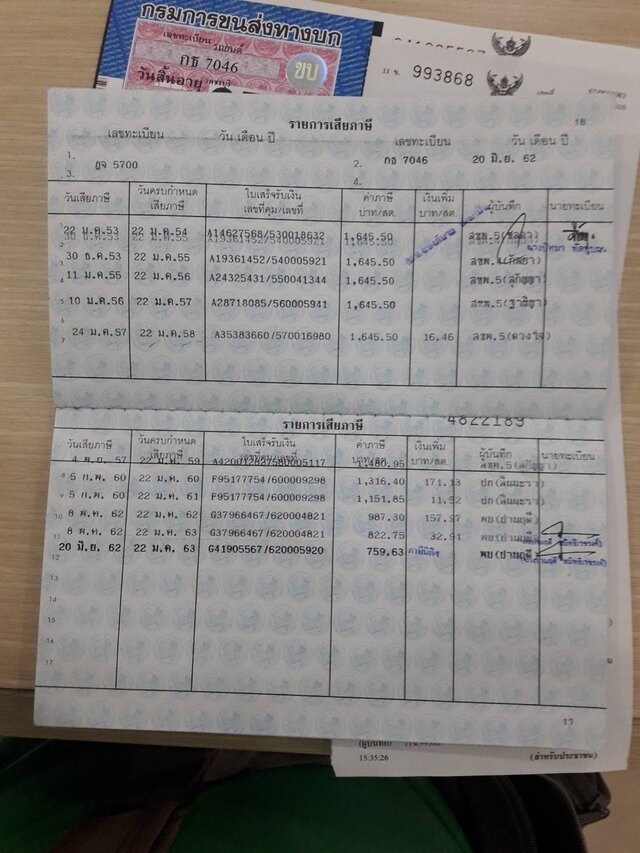 กรมการขนส่งทางบก
เลขทะเบียน รถยนต์
กธ 7046
ขบ
วันสิ้นอายุ
11 ข. 993868
รายการเสียภาษี 16
เลขทะเบียน วัน เดือน ปี เลขทะเบียน วัน เดือน ปี
1. ฎจ 5700 2. กธ 7046 20 มิ.ย. 62
3. 4.
วันเสียภาษี วันครบกำหนดเสียภาษี ใบเสร็จรับเงิน เลขที่คุม/เลขที่ ค่าภาษี บาท/สต. เงินเพิ่ม บาท/สต. ผู้บันทึก นายทะเบียน
1 22 ม.ค.53 22 ม.ค.54 A14627568/530018632 1,645.50 สขพ.5
2 30 ธ.ค.53 22 ม.ค.55 A19361452/540005921 1,645.50
3 30 ธ.ค.53 22 ม.ค.55 A19361452/540005921 1,645.50 สขพ.
4 11 ม.ค.55 22 ม.ค.56 A24325431/550041344 1,645.50 สขพ.5(สุกัญญา)
5 10 ม.ค.56 22 ม.ค.57 A28718085/560005941 1,645.50 สขพ.5
6
7 24 ม.ค.57 22 ม.ค.58 A35383660/570016980 1,645.50 16.46 สขพ.5(ดวงใจ)
รายการเสียภาษี 4822189
วันเสียภาษี วันครบกำหนดเสียภาษี ใบเสร็จรับเงิน เลขที่คุม/เลขที่ ค่าภาษี บาท/สต. เงินเพิ่ม บาท/สต. ผู้บันทึก นายทะเบียน
4 พ.ย. 57 22 ม.ค. 59 1,480.95 สขพ.5(สุกัญญา)
8 5 ก.พ. 60 22 ม.ค. 60 F95177754/600009298 1,316.40 171.13
9 5 ก.พ. 60 22 ม.ค. 61 F95177754/600009298 1,151.85 11.52
10 8 พ.ค. 62 22 ม.ค. 62 G37966467/620004821 987.30 157.97 พย(ปานฤดี)
11 8 พ.ค. 62 22 ม.ค. 63 G37966467/620004821 822.75 32.91 พย(ปานฤดี)
12 20 มิ.ย. 62 22 ม.ค. 63 G41905567/620005920 759.63 พย(ปานฤดี)
13
14
15
16
17
17
(ผู้บันทึก)
15:35:26 (สำหรับประชาชน)